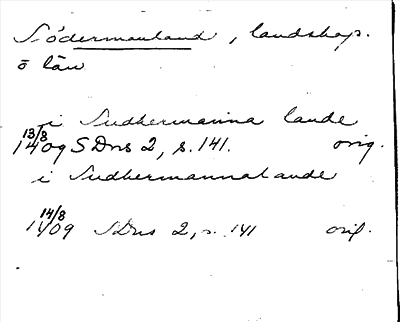 Södermanland, landskap.
o län
i Sudhermanna lande
13/8
1409 SDns 2, s. 141. orig.
i Sudhermannalande
14/8
1409 SDns 2, s. 141 orig.